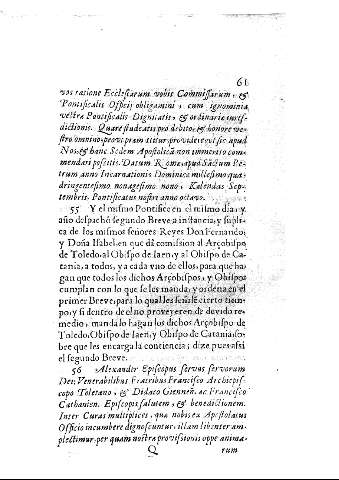 61
vos ratione Ecclesiarum vobis Commissarum, &
Pontificalis Officij obligamini, cum ignominia
vestra Pontificalis Dignitatis, & ordinariæ iuris-
dictionis. Quare studeatis pro debito, & honore ve-
stro omnino, provt primitur providere, vt sic apud
Nos, & hanc Sedem Apostolicã non immerito com-
mendari possitis. Datum Romæ, apud Sãctum Pe-
trum, anno Incarnationis Dominicæ millesimo qua-
dringentesimo nonagesimo nono, Kalendas Sep-
tembris. Pontificatus nostri anno octavo.
55 Y el mismo Pontifice en el mismo dia, y
año, despachó segundo Breve a instancia, y supli-
ca de los mismos señores Reyes Don Fernando,
y Doña Isabel, en que dá comision al Arçobispo
de Toledo, al Obispo de Iaen, y al Obispo de Ca-
tania, a todos, y a cada vno de ellos, para que ha-
gan que todos los dichos Arçobispos, y Obispos
cumplan con lo que se les manda, y ordena en el
primer Breve, para lo qual les señale cierto tiem-
po, y si dentro de el no proveyeren de devido re-
medio, manda lo hagan los dichos Arçobispo de
Toledo, Obispo de Iaen, y Obispo de Catania, so-
bre que les encarga la conciencia; dize pues assi
el segundo Breve.
56 Alexander Episcopus servus servorum
Dei: Venerabilibus Fratribus Francisco Archiepis-
copo Toletano, & Didaco Giennẽn. ac Francisco
Cathanien. Episcopis salutem, & benedictionem.
Inter Curas multiplices, quæ nobis ex Apostolatus
Officio incumbere dignoscuntur, illam libenter am-
plectimur, per quam nostræ provissionis ope anima-
Q rum